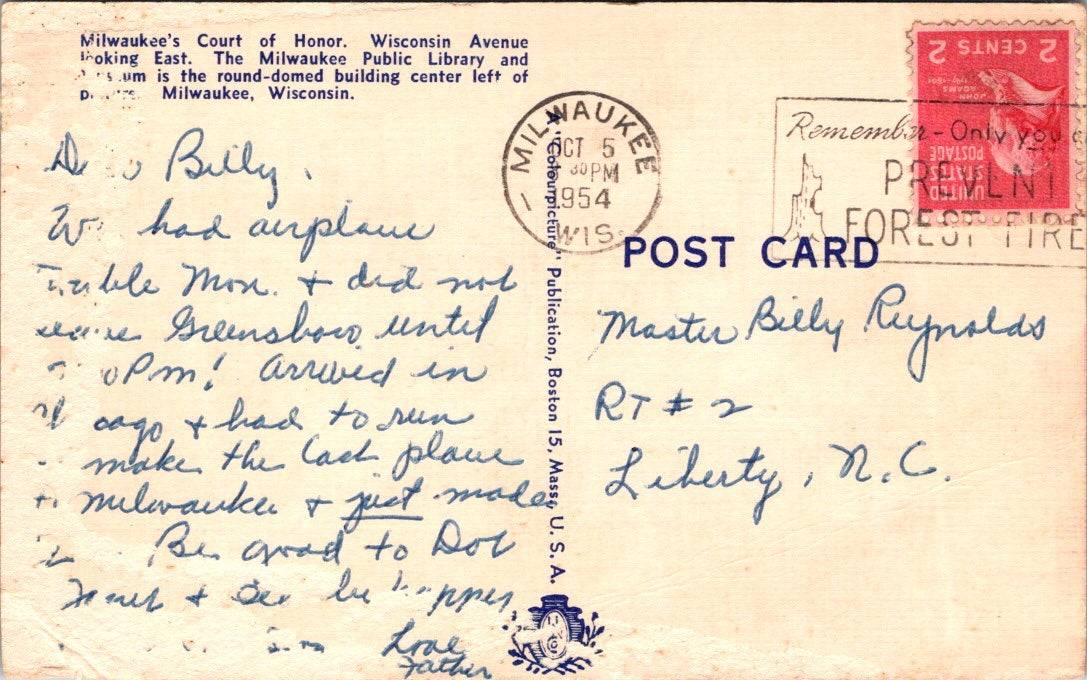 Milwaukee's Court of Honor. Wisconsin Avenue
looking East. The Milwaukee Public Library and
is the round-domed building center left of
Milwaukee, Wisconsin.
MILWAUKEE
OCT 5
30 PM
1954
WIS.
2 CENTS 2
JOHN
ADAMS
UNITED
STATES
POSTAGE
Remember - Only you
PREVENT
FOREST FIRE
POST CARD
A "Colourpicture" Publication, Boston 15, Mass., U. S. A.
Billy,
had airplane
Mon. & did not
Greensboro until
PM! Arrived in
& had to run
make the last plane
Milwaukee & just made
Be good to Dot
& be
Love
Father
Master Billy Reynolds
RT # 2
Liberty, N.C.